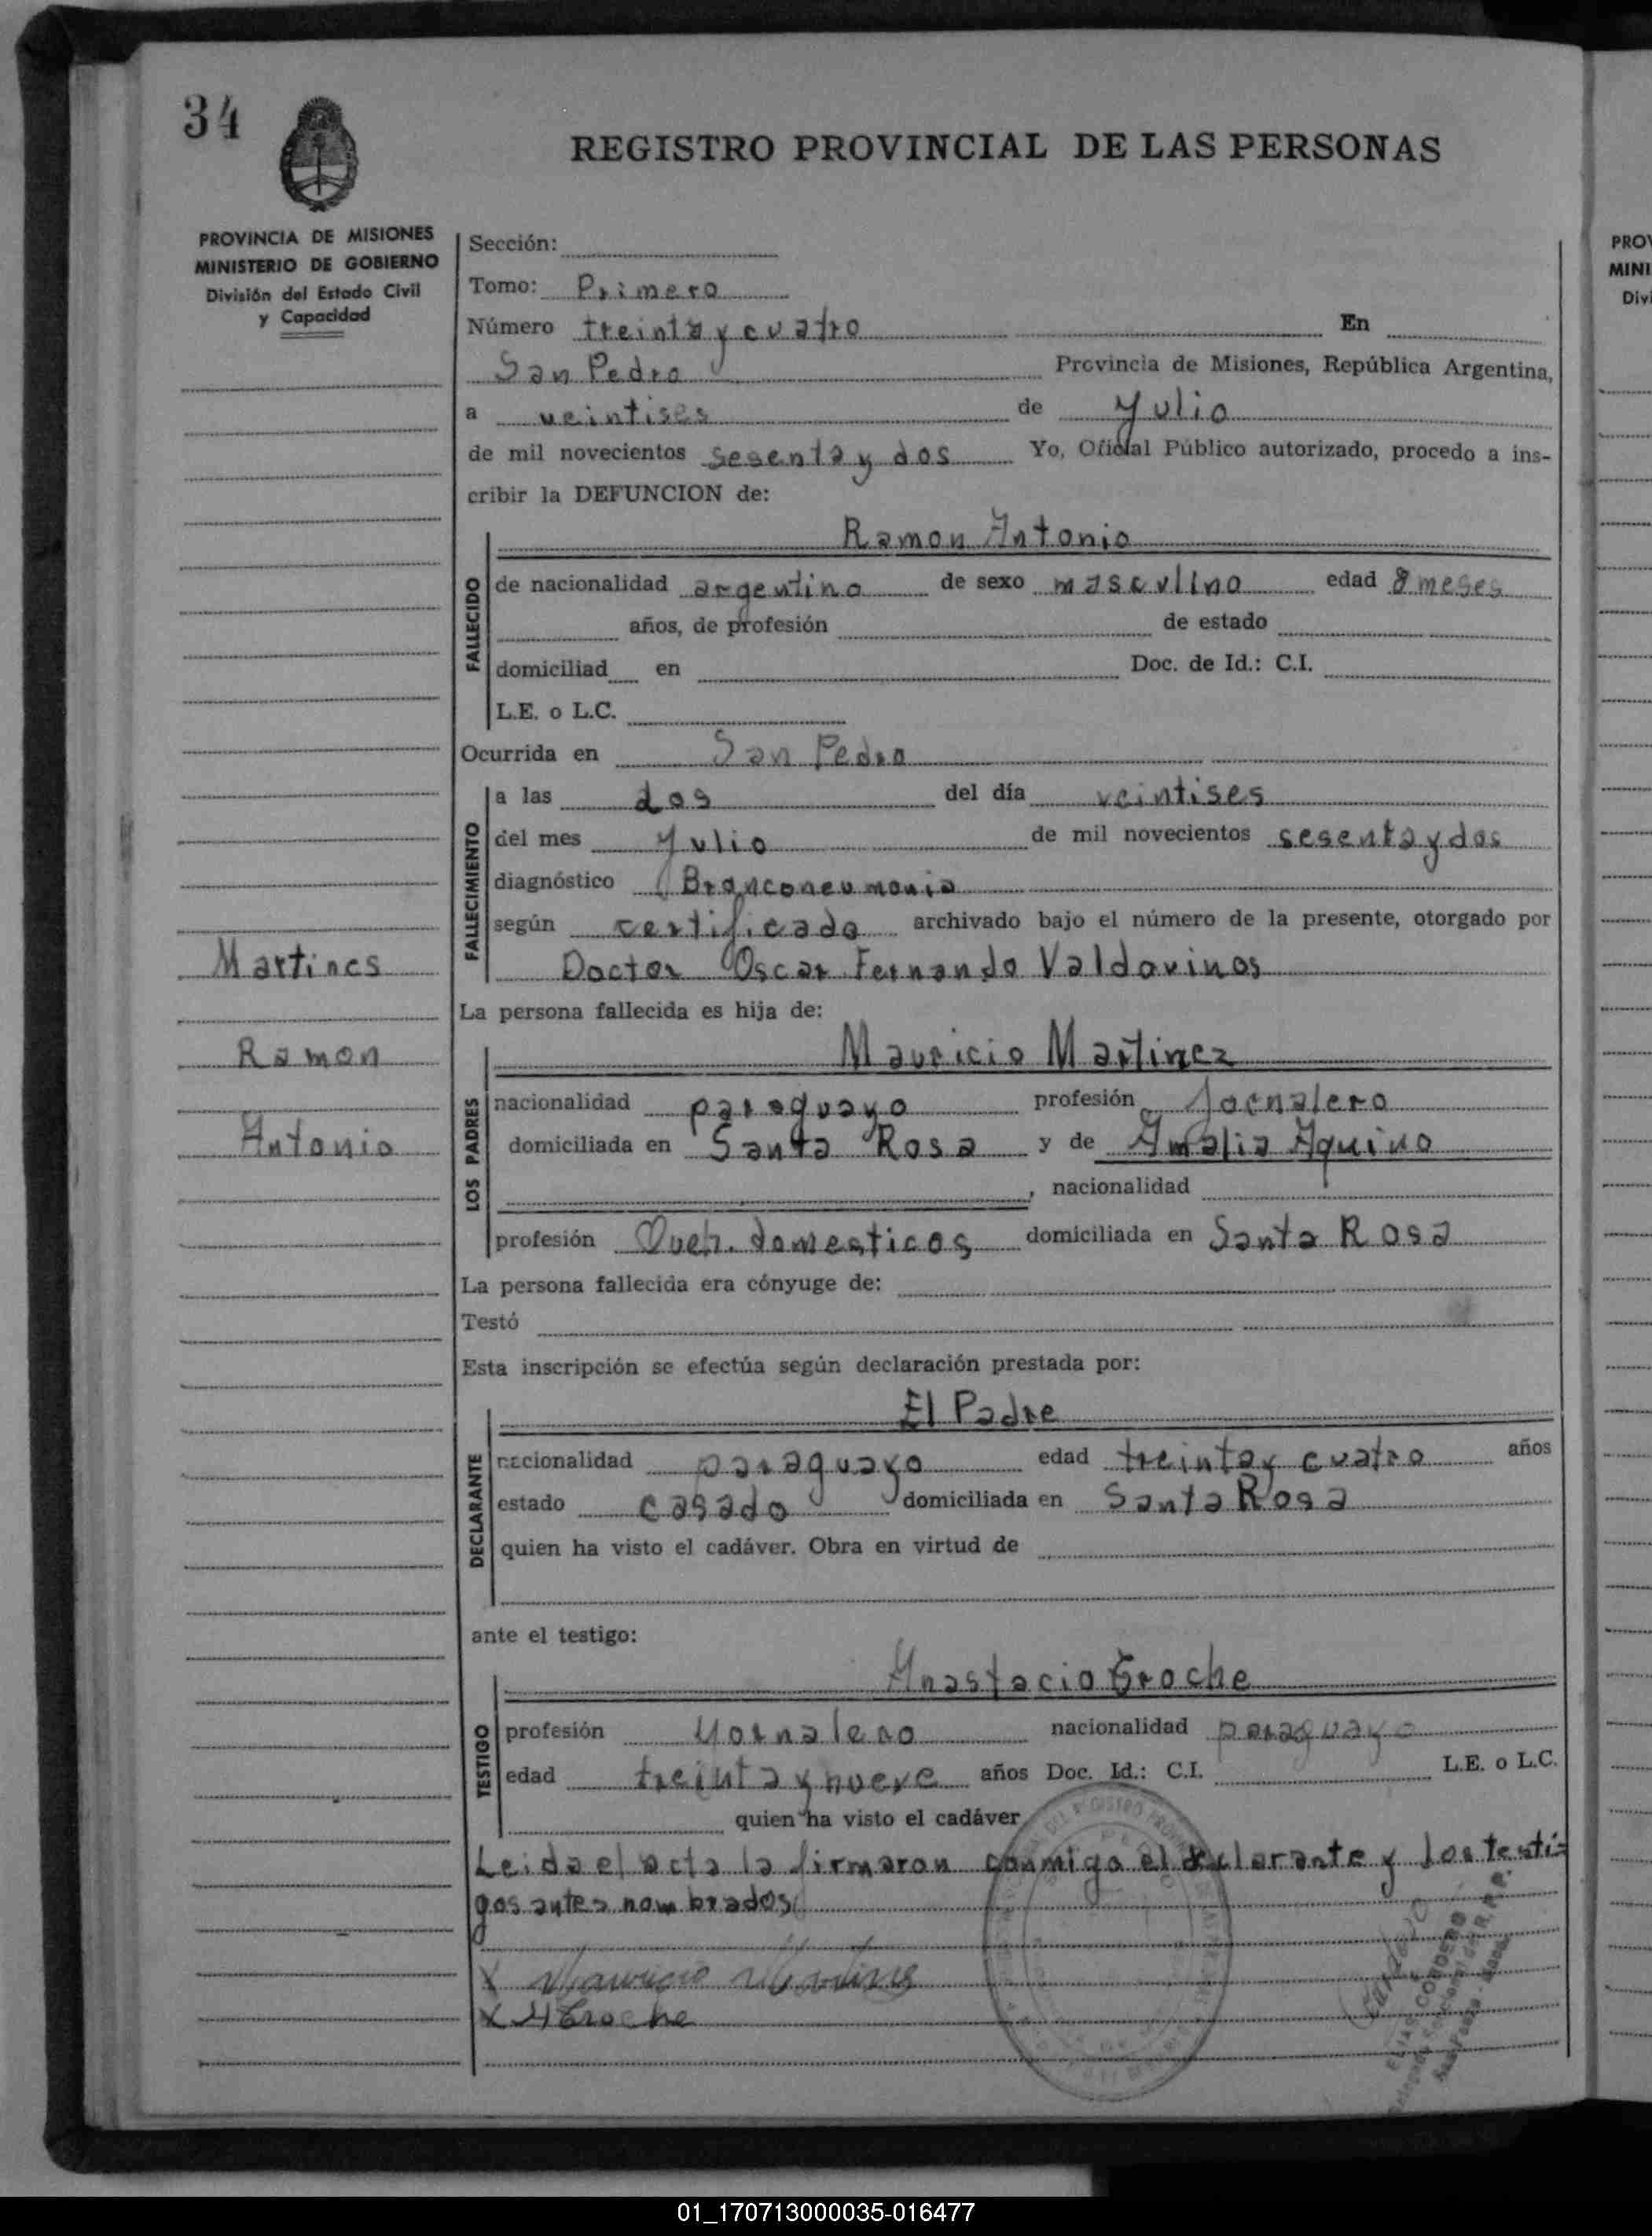 34
REGISTRO PROVINCIAL DE LAS PERSONAS
PROVINCIA DE MISIONES
MINISTERIO DE GOBIERNO
División del Estado Civil
y Capacidad
Sección:
Tomo: Primero
Número treinta y cuatro En
San Pedro Provincia de Misiones, República Argentina,
a veintises de Yulio
de mil novecientos sesenta y dos Yo, Oficial Público autorizado, procedo a ins-
cribir la DEFUNCION de:
Ramon Antonio
FALLECIDO
de nacionalidad argentino de sexo masculino edad 8 meses
años, de profesión de estado
domiciliad en Doc. de Id.: C.I.
L.E. o L.C.
Ocurrida en San Pedro
FALLECIMIENTO
a las dos del día veintises
del mes Yulio de mil novecientos sesenta y dos
diagnóstico Bronconeumonia
según certificado archivado bajo el número de la presente, otorgado por
Doctor Oscar Fernando Valdovinos
Martines
Ramon
Antonio
La persona fallecida es hija de:
Mauricio Martinez
LOS PADRES
nacionalidad paraguayo profesión Jornalero
domiciliada en Santa Rosa y de Amalia Aquino
, nacionalidad
profesión Queh. domesticos domiciliada en Santa Rosa
La persona fallecida era cónyuge de:
Testó
Esta inscripción se efectúa según declaración prestada por:
El Padre
DECLARANTE
nacionalidad paraguayo edad treinta y cuatro años
estado casado domiciliada en Santa Rosa
quien ha visto el cadáver. Obra en virtud de
ante el testigo:
Anastacio Groche
TESTIGO
profesión Yornalero nacionalidad paraguayo
edad treinta y nueve años Doc. Id.: C.I. L.E. o L.C.
quien ha visto el cadáver
Leida el acta la firmaron conmigo el declarante y los testi=
gos antes nombrados
X Mauricio Martines
X
ELIAS CORDERO
PROV
MINI
Divi
01_170713000035-016477